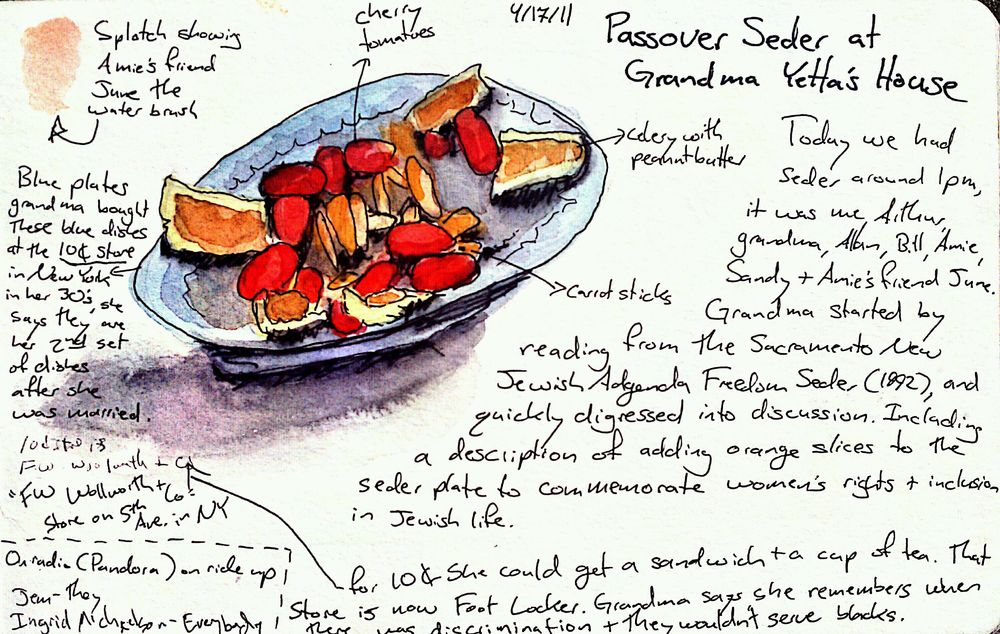 4/17/11
Passover Seder at
Grandma Yetta's House
Splotch showing
Amie's friend
June the
water brush
cherry
tomatoes
celery with
peanut butter
carrot sticks
Blue plates
grandma bought
These blue dishes
at the 10¢ store
in New York
in her 30's, she
says they are
her 2nd set
of dishes
after she
was married.
10¢ store is
FW Woolworth + Co
"FW Wollworth + Co"
Store on 5th
Ave. in NY
Today we had
Seder around 1pm,
it was me, Arthur,
grandma, Allan, Bill, Amie,
Sandy + Amie's friend June.
Grandma started by
reading from the Sacramento New
Jewish Adgenda Freedom Seder (1992), and
quickly digressed into discussion. Including
a description of adding orange slices to the
seder plate to commemorate women's rights + inclusion
in Jewish life.
for 10¢ She could get a sandwich + a cup of tea. That
Store is now Foot Locker. Grandma says she remembers when
there was discrimination + they wouldn't serve blacks.
On radio (Pandora) on ride up
Jem - They
Ingrid Michaelson - Everybody